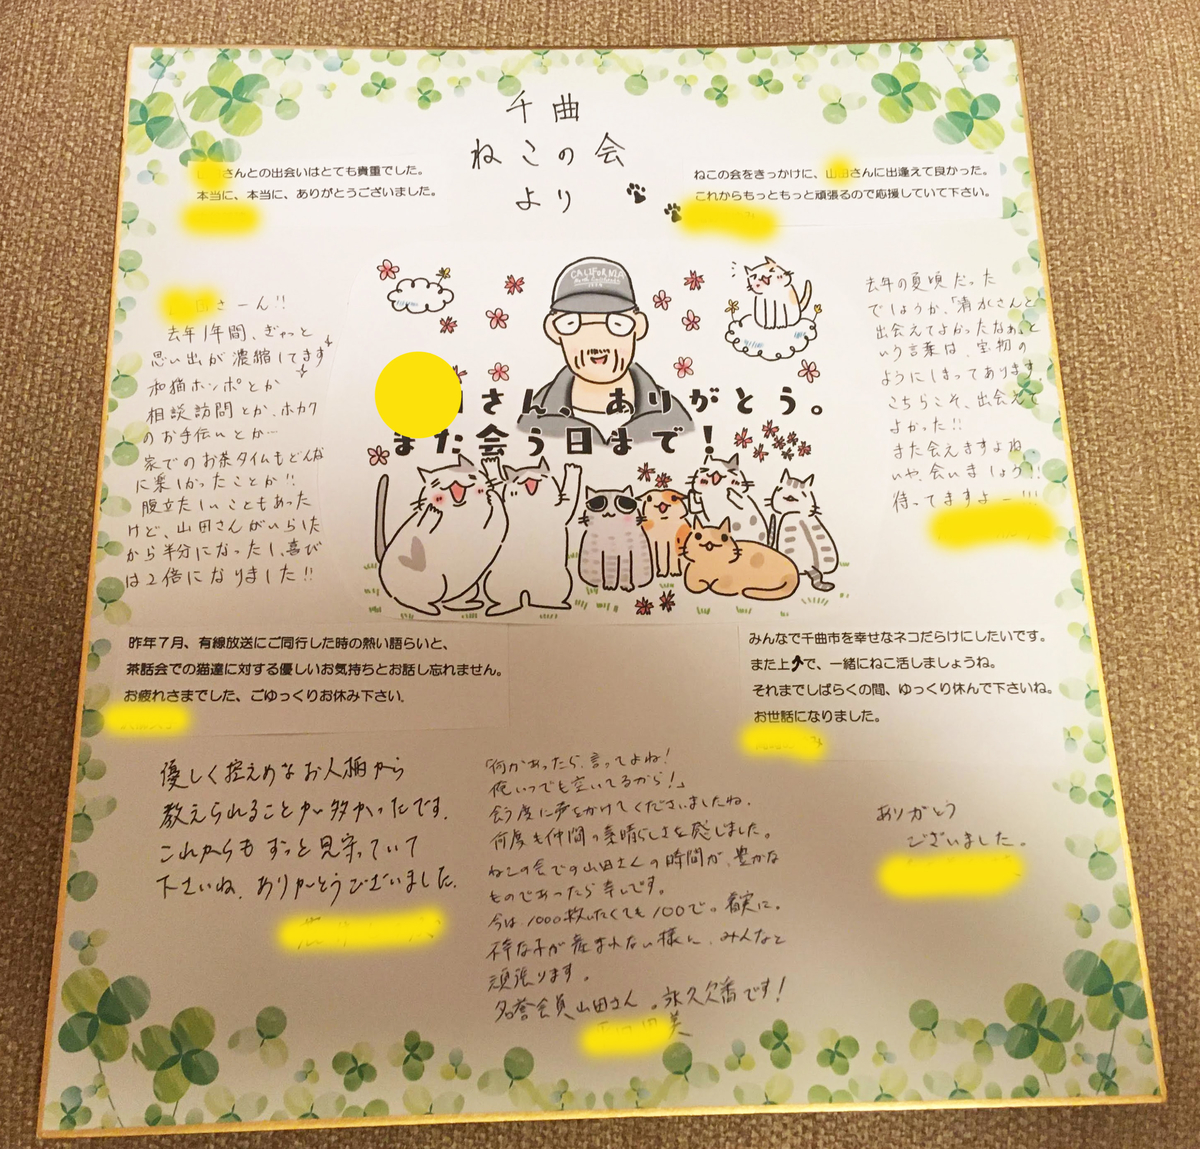 千曲
ねこの会
より
さんとの出会いはとても貴重でした。
本当に、本当に、ありがとうございました。
ねこの会をきっかけに、山田さんに出逢えて良かった。
これからもっともっと頑張るので応援していて下さい。
さーん!!
去年1年間、ぎゅっと
思い出が濃縮してます
和猫ホンポとか
相談訪問とか、ホカク
のお手伝いとか…
家でのお茶タイムもどんな
に楽しかったことか!!
腹立たしいこともあった
けど、山田さんがいらした
から半分になったし、喜び
は2倍になりました!!
CALIFORNIA
さん、ありがとう。
また会う日まで!
去年の夏頃だった
でしょうか、「清水さんと
出会えてよかったなぁ」と
いう言葉は、宝物の
ようにしまってあります
こちらこそ、出会えて
よかった!!
また会えますよね
いや、会いましょう!!
待ってますよー!!!
昨年7月、有線放送にご同行した時の熱い語らいと、
茶話会での猫達に対する優しいお気持ちとお話し忘れません。
お疲れさまでした、ごゆっくりお休み下さい。
みんなで千曲市を幸せなネコだらけにしたいです。
また上で、一緒にねこ活しましょうね。
それまでしばらくの間、ゆっくり休んで下さいね。
お世話になりました。
優しく控えめなお人柄から
教えられることが多かったです。
これからもずっと見守っていて
下さいね。ありがとうございました。
「何かあったら、言ってよね!
俺いつでも空いてるから!」
会う度に声をかけてくださいましたね。
何度も仲間の素晴らしさを感じました。
ねこの会での山田さんの時間が、豊かな
ものであったら幸いです。
今は、1000救いたくても100で。着実に。
不幸な子が産まれない様に、みんなと
頑張ります。
名誉会員山田さん。永久欠番です!
美
ありがとう
ございました。